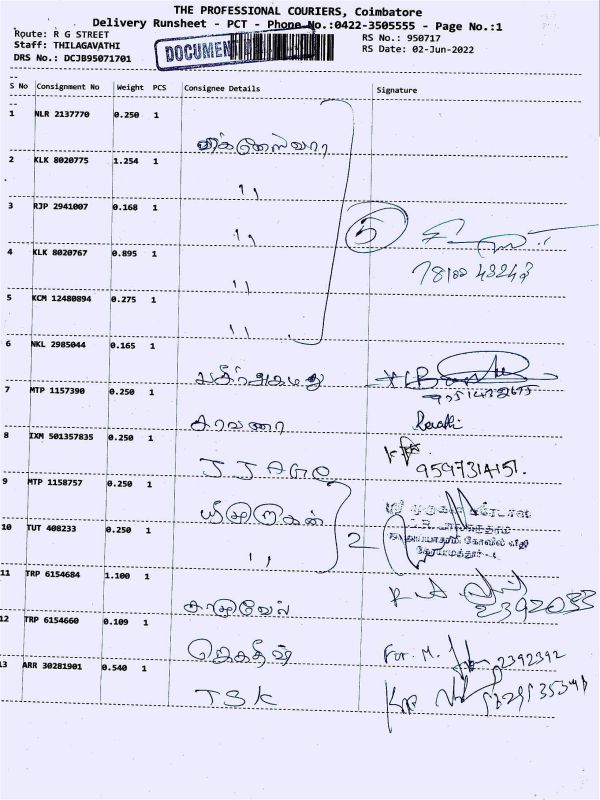 THE PROFESSIONAL COURIERS, Coimbatore
Delivery Runsheet - PCT - Phone No.:0422-3505555 - Page No.:1
Route: R G STREET
RS No.: 950717
Staff: THILAGAVATHI
DOCUMENT
RS Date: 02-Jun-2022
DRS No.: DCJB95071701
S No Consignment No Weight PCS Consignee Details Signature
1 NLR 2137770 0.250 1
விக்னேஸ்வரா
2 KLK 8020775 1.254 1
,,
3 RJP 2941007 0.168 1
,, 5
4 KLK 8020767 0.895 1
,,
5 KCM 12480894 0.275 1
,,
6 NKL 2985044 0.165 1
7 MTP 1157390 0.250 1
சரவணா Revathi
8 IXM 501357835 0.250 1
9597314151.
9 MTP 1158757 0.250 1
ஸ்ரீ முருகன்
10 TUT 408233 0.250 1
,, 2
11 TRP 6154684 1.100 1
2392033
12 TRP 6154660 0.109 1
ஜெகதீஷ் For. M. 2392392
13 ARR 30281901 0.540 1
TSK